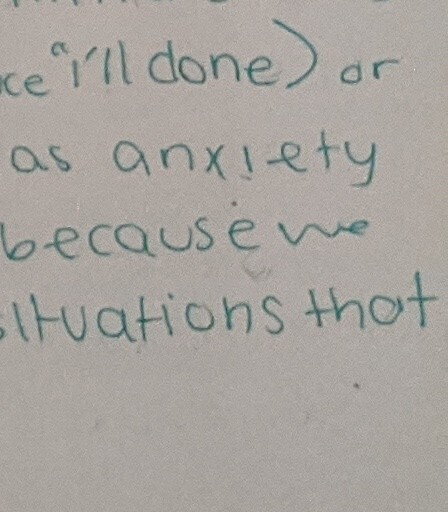 "i'll done) or
as anxiety
because we
situations that